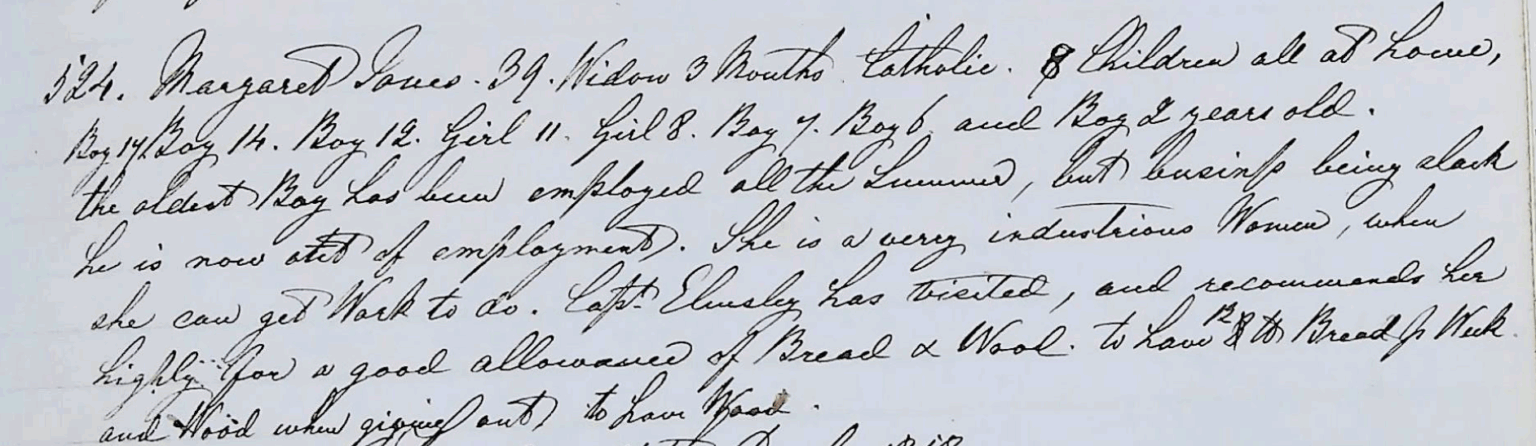 524. Margaret Jones. 39. Widow 3 Months. Catholic. 8 Children all at home,
Boy 17. Boy 14. Boy 12. Girl 11. Girl 8. Boy 7. Boy 6 and Boy 2 years old.
the oldest Boy has been employed all the Summer, but business being slack
he is now out of employment. She is a very industrious Women, when
she can get Work to do. Capt. Elmsley has visited, and recommends her
highly for a good allowance of Bread & Wood. to have 12 lb Bread p Week.
and Wood when giving out to have Wood.